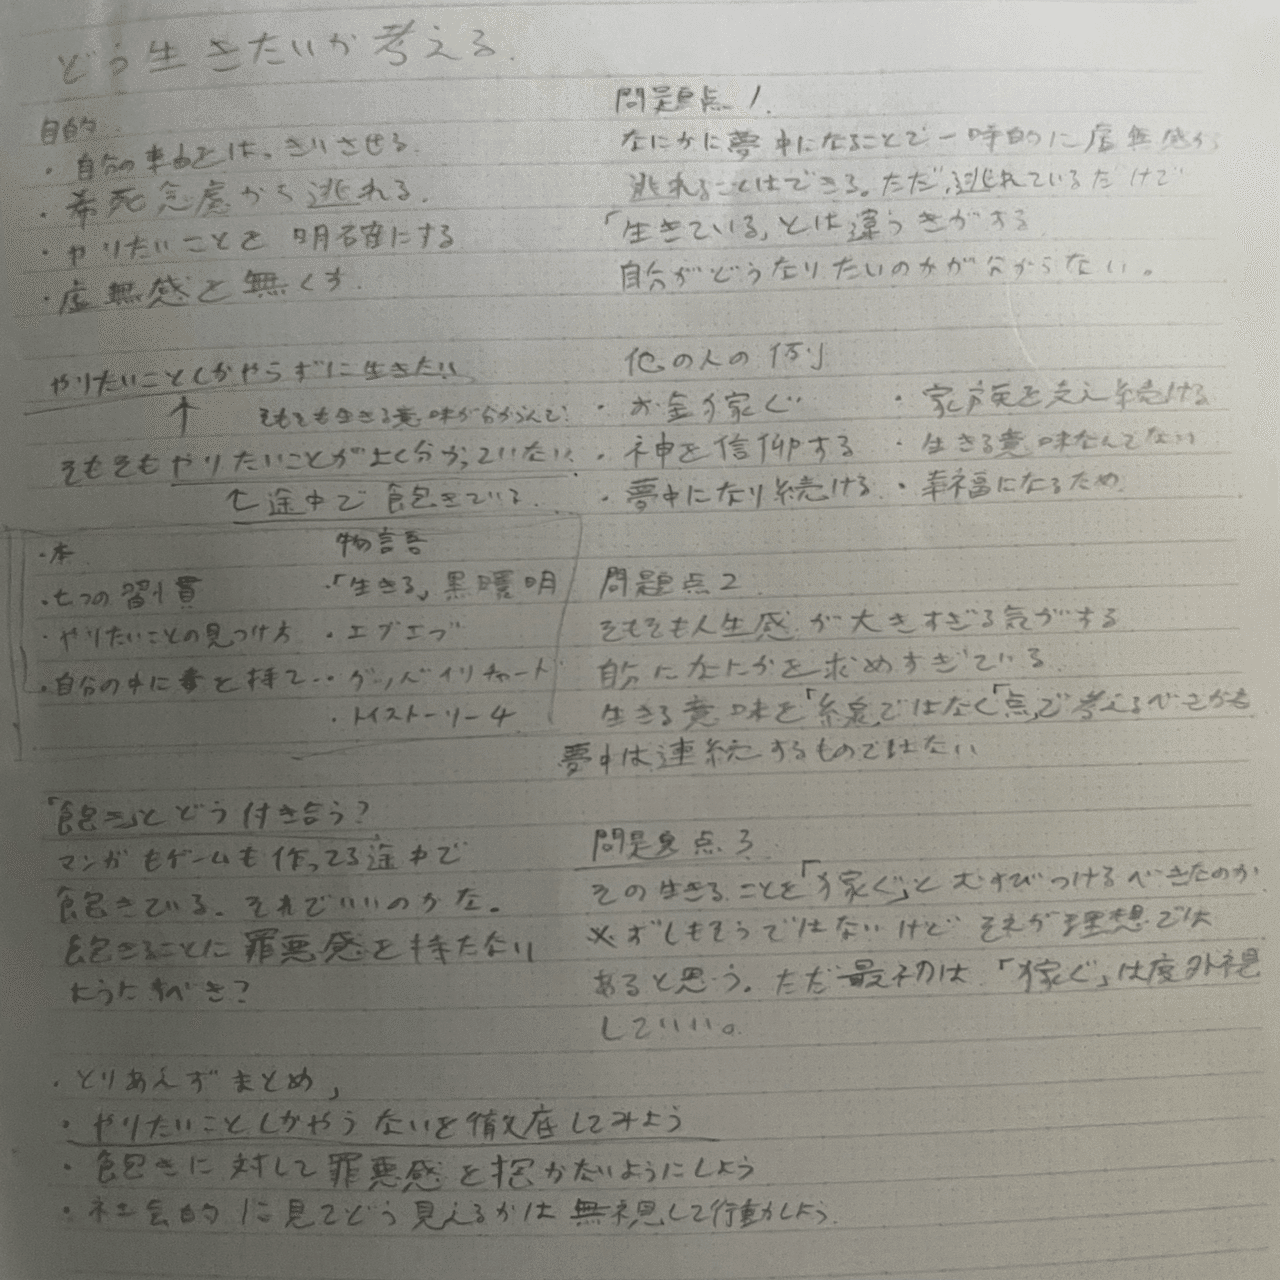 どう生きたいか考える.
目的
・自分の車由とは、きりさせる.
・希死念慮から逃れる.
・やりたいことを明確にする
・虚無感を無くす.
やりたいことしかやらずに生きたい
↑ そもそも生きる意味が分からんて!
そもそもやりたいことがよく分かっていない.
↑途中で飽きている.
・本
・七つの習慣
・やりたいことの見つけ方
・自分の中に毒を持て..
物語
・「生きる」黒澤明
・エブエブ
・グッバイリチャード
・トイストーリー4
「飽き」とどう付き合う?
マンガもゲームも作ってる途中で
飽きている.それでいいのかな。
飽きることに罪悪感を持たない
ようにすべき?
問題点1.
なにかに夢中になることで一時的に虚無感から
逃れることはできる。ただ、逃れているだけで
「生きている」とは違うきがする
自分がどうなりたいのかが分からない。
他の人の例
・お金を稼ぐ
・神を信仰する
・夢中になり続ける
・家族を支え続ける
・生きる意味なんてない
・幸福になるため
問題点2
そもそも人生感が大きすぎる気がする
自分になにかを求めすぎている
生きる意味を「線」ではなく「点」で考えるべきかも
夢中は連続するものではない
問題点3
その生きることを「稼ぐ」とむすびつけるべきなのか
必ずしもそうではないけどそれが理想では
あると思う。ただ最初は「稼ぐ」は度外視
していい。
・とりあえずまとめ,
・やりたいことしかやらないを徹底してみよう
・飽きに対して罪悪感を抱かないようにしよう
・社会的に見てどう見えるかは無視して行動しよう.